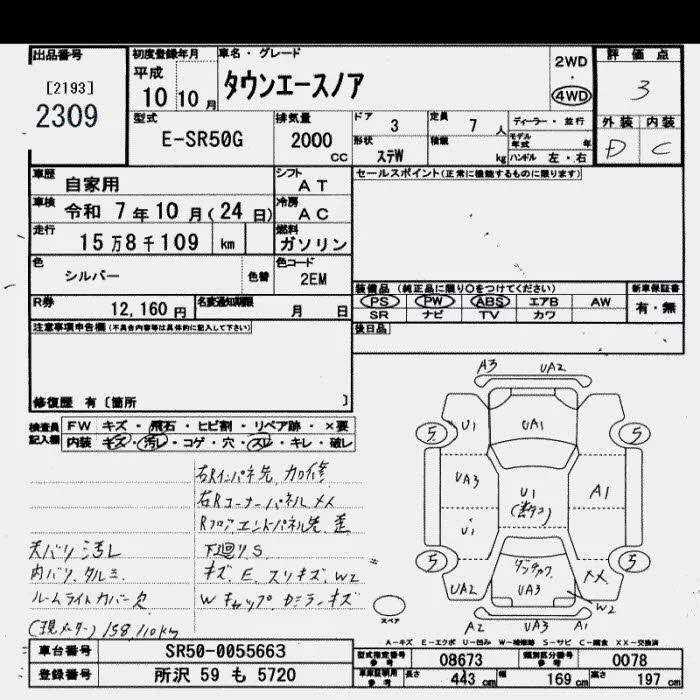 出品番号 初度登録年月 車名・グレード 評価点
[2193] 平成 タウンエースノア 2WD ・ 4WD 3
2309 10 10月
型式 排気量 ドア 3 定員 7人 ディーラー・並行 外装 内装
E-SR50G 2000 CC 形状 ステW 積載 kg モデル年式 年 ハンドル 左・右 D C
車歴 自家用 シフト AT セールスポイント(正常に機能するものに限ります)
車検 令和 7年10月(24日) 冷房 AC
走行 15万8千109 km 燃料 ガソリン
色 シルバー 色替 色コード 2EM 装備品 (純正品に限り○をつけてください) 新車保証書
R券 12,160円 名変通知期限 月 日 PS PW ABS エアB AW 有・無
SR ナビ TV カワ
注意事項申告欄(不具合内容等は具体的に記入して下さい) 後日品
修復歴 有〔箇所 〕
検査員記入欄 FW キズ・飛石・ヒビ割・リペア跡・×要
内装 キズ・汚レ・コゲ・穴・スレ・キレ・破レ
右Rインパネ先 加修
右Rコーナーパネルメメ
Rフロアエンドパネル先 歪
天バリ汚レ 下廻りS
内バリ タルミ キズ E スリキズ W2
ルームライトカバー欠 Wキャップ
(現メーター)158,110km
A3 UA2
5 U1 UA1 5
UA3 U1 A1
U1
5 5
UA2 UA3 XX W2
A2 UA3 A1
スペア
A-キズ E-エクボ U-凹み W-補修跡 S-サビ C-腐食 XX-交換済
車台番号 SR50-0055663 型式指定番号 参考 08673 類別区分番号 参考 0078
登録番号 所沢 59 も 5720 車庫証明用 参考 長さ 443 cm 幅 169 cm 高さ 197 cm